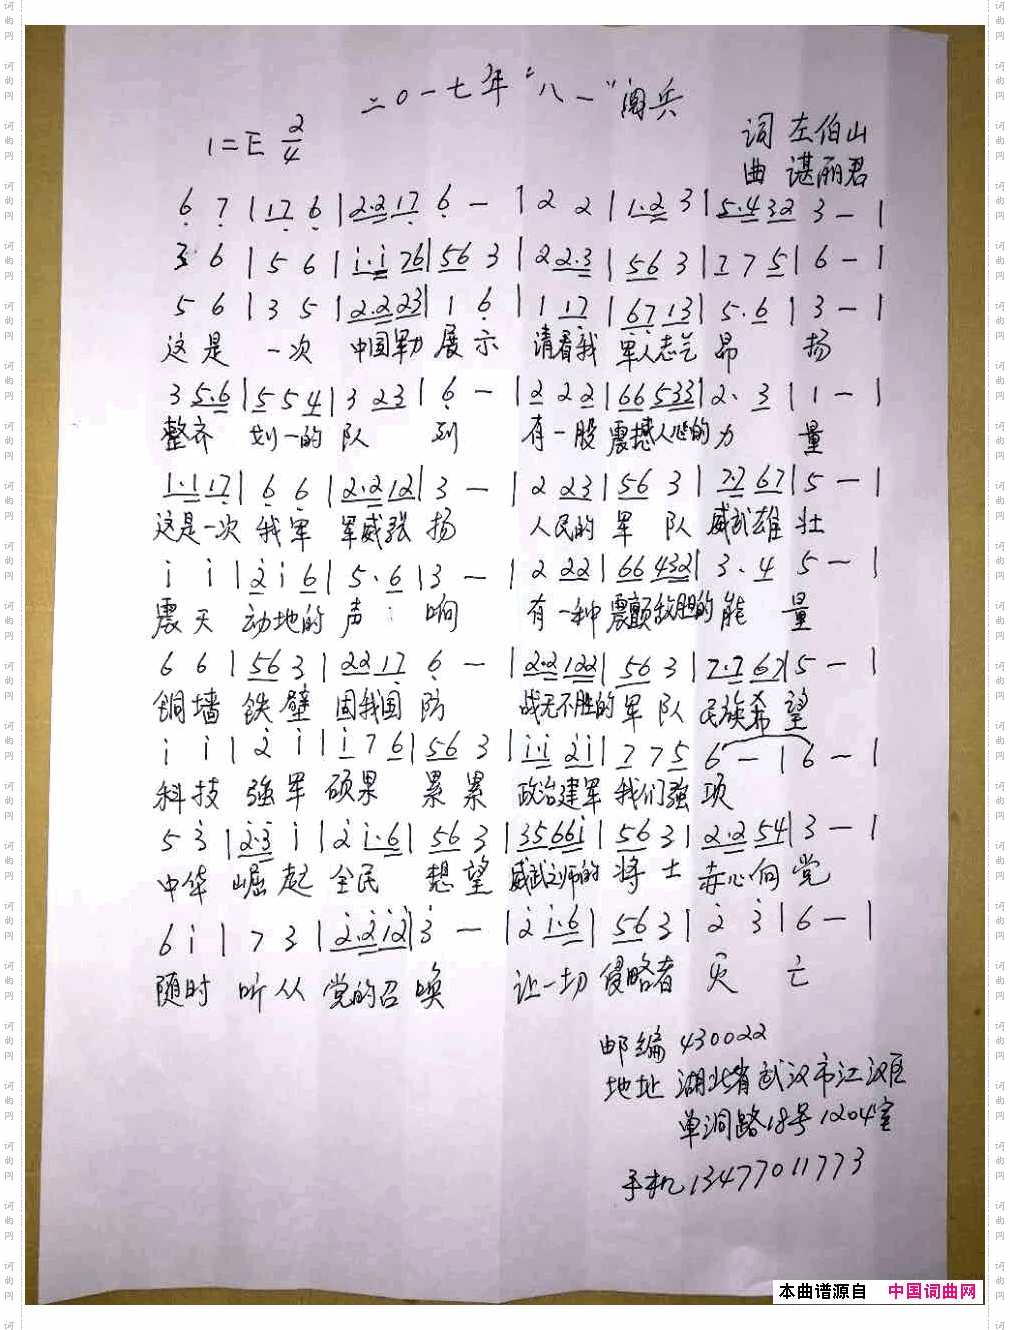 二0一七年“八一”阅兵
1=E 2/4
词 左伯山
曲 谌丽君
6 7 | 17 6 | 2·2 17 6 - | 2 2 | 1·2 3 | 5·4 32 3 - |
3· 6 | 5 6 | i·i 76 | 56 3 | 2 2·3 | 56 3 | 7 7 5 | 6 - |
5 6 | 3 5 | 2·2 23 | 1 6 | 1 17 | 67 13 | 5·6 | 3 - |
这是 一次 中国军力 展示 请看我 军人志气 昂 扬
3 5·6 | 5 5 4 | 3 23 | 6 - | 2 2 2 | 66 533 | 2· 3 | 1 - |
整齐 划一的 队 列 有一股 震撼人心的 力 量
1·1 17 | 6 6 | 2·2 12 | 3 - | 2 23 | 56 3 | 7·7 67 | 5 - |
这是一次 我军 军威强 扬 人民的 军 队 威武雄 壮
i i | 2 i 6 | 5·6 | 3 - | 2 22 | 66 432 | 3·4 5 - |
震天 动地的 声 响 有一种 震颤敌胆的 能 量
6 6 | 56 3 | 22 17 6 - | 2·2 122 | 56 3 | 7·7 67 | 5 - |
铜墙 铁壁 固我国 防 战无不胜的 军 队 民族希 望
i i | 2 i | i 7 6 | 56 3 | i·i 2i | 7 7 5 6 - | 6 - |
科技 强军 硕果 累累 政治建军 我们强 项
5 3 | 2·3 i | 2 i·6 | 56 3 | 3566i | 56 3 | 2·2 54 | 3 - |
中华 崛起 全民 想望 威武之师的 将士 赤心向 党
6 i | 7 3 | 2·2 i2 | 3 - | 2 i·6 | 56 3 | 2 3 | 6 - |
随时 听从 党的召 唤 让一切 侵略者 灭 亡
邮编 430022
地址 湖北省武汉市江汉区
单洞路18号1204室
手机13477011773
本曲谱源自 中国词曲网